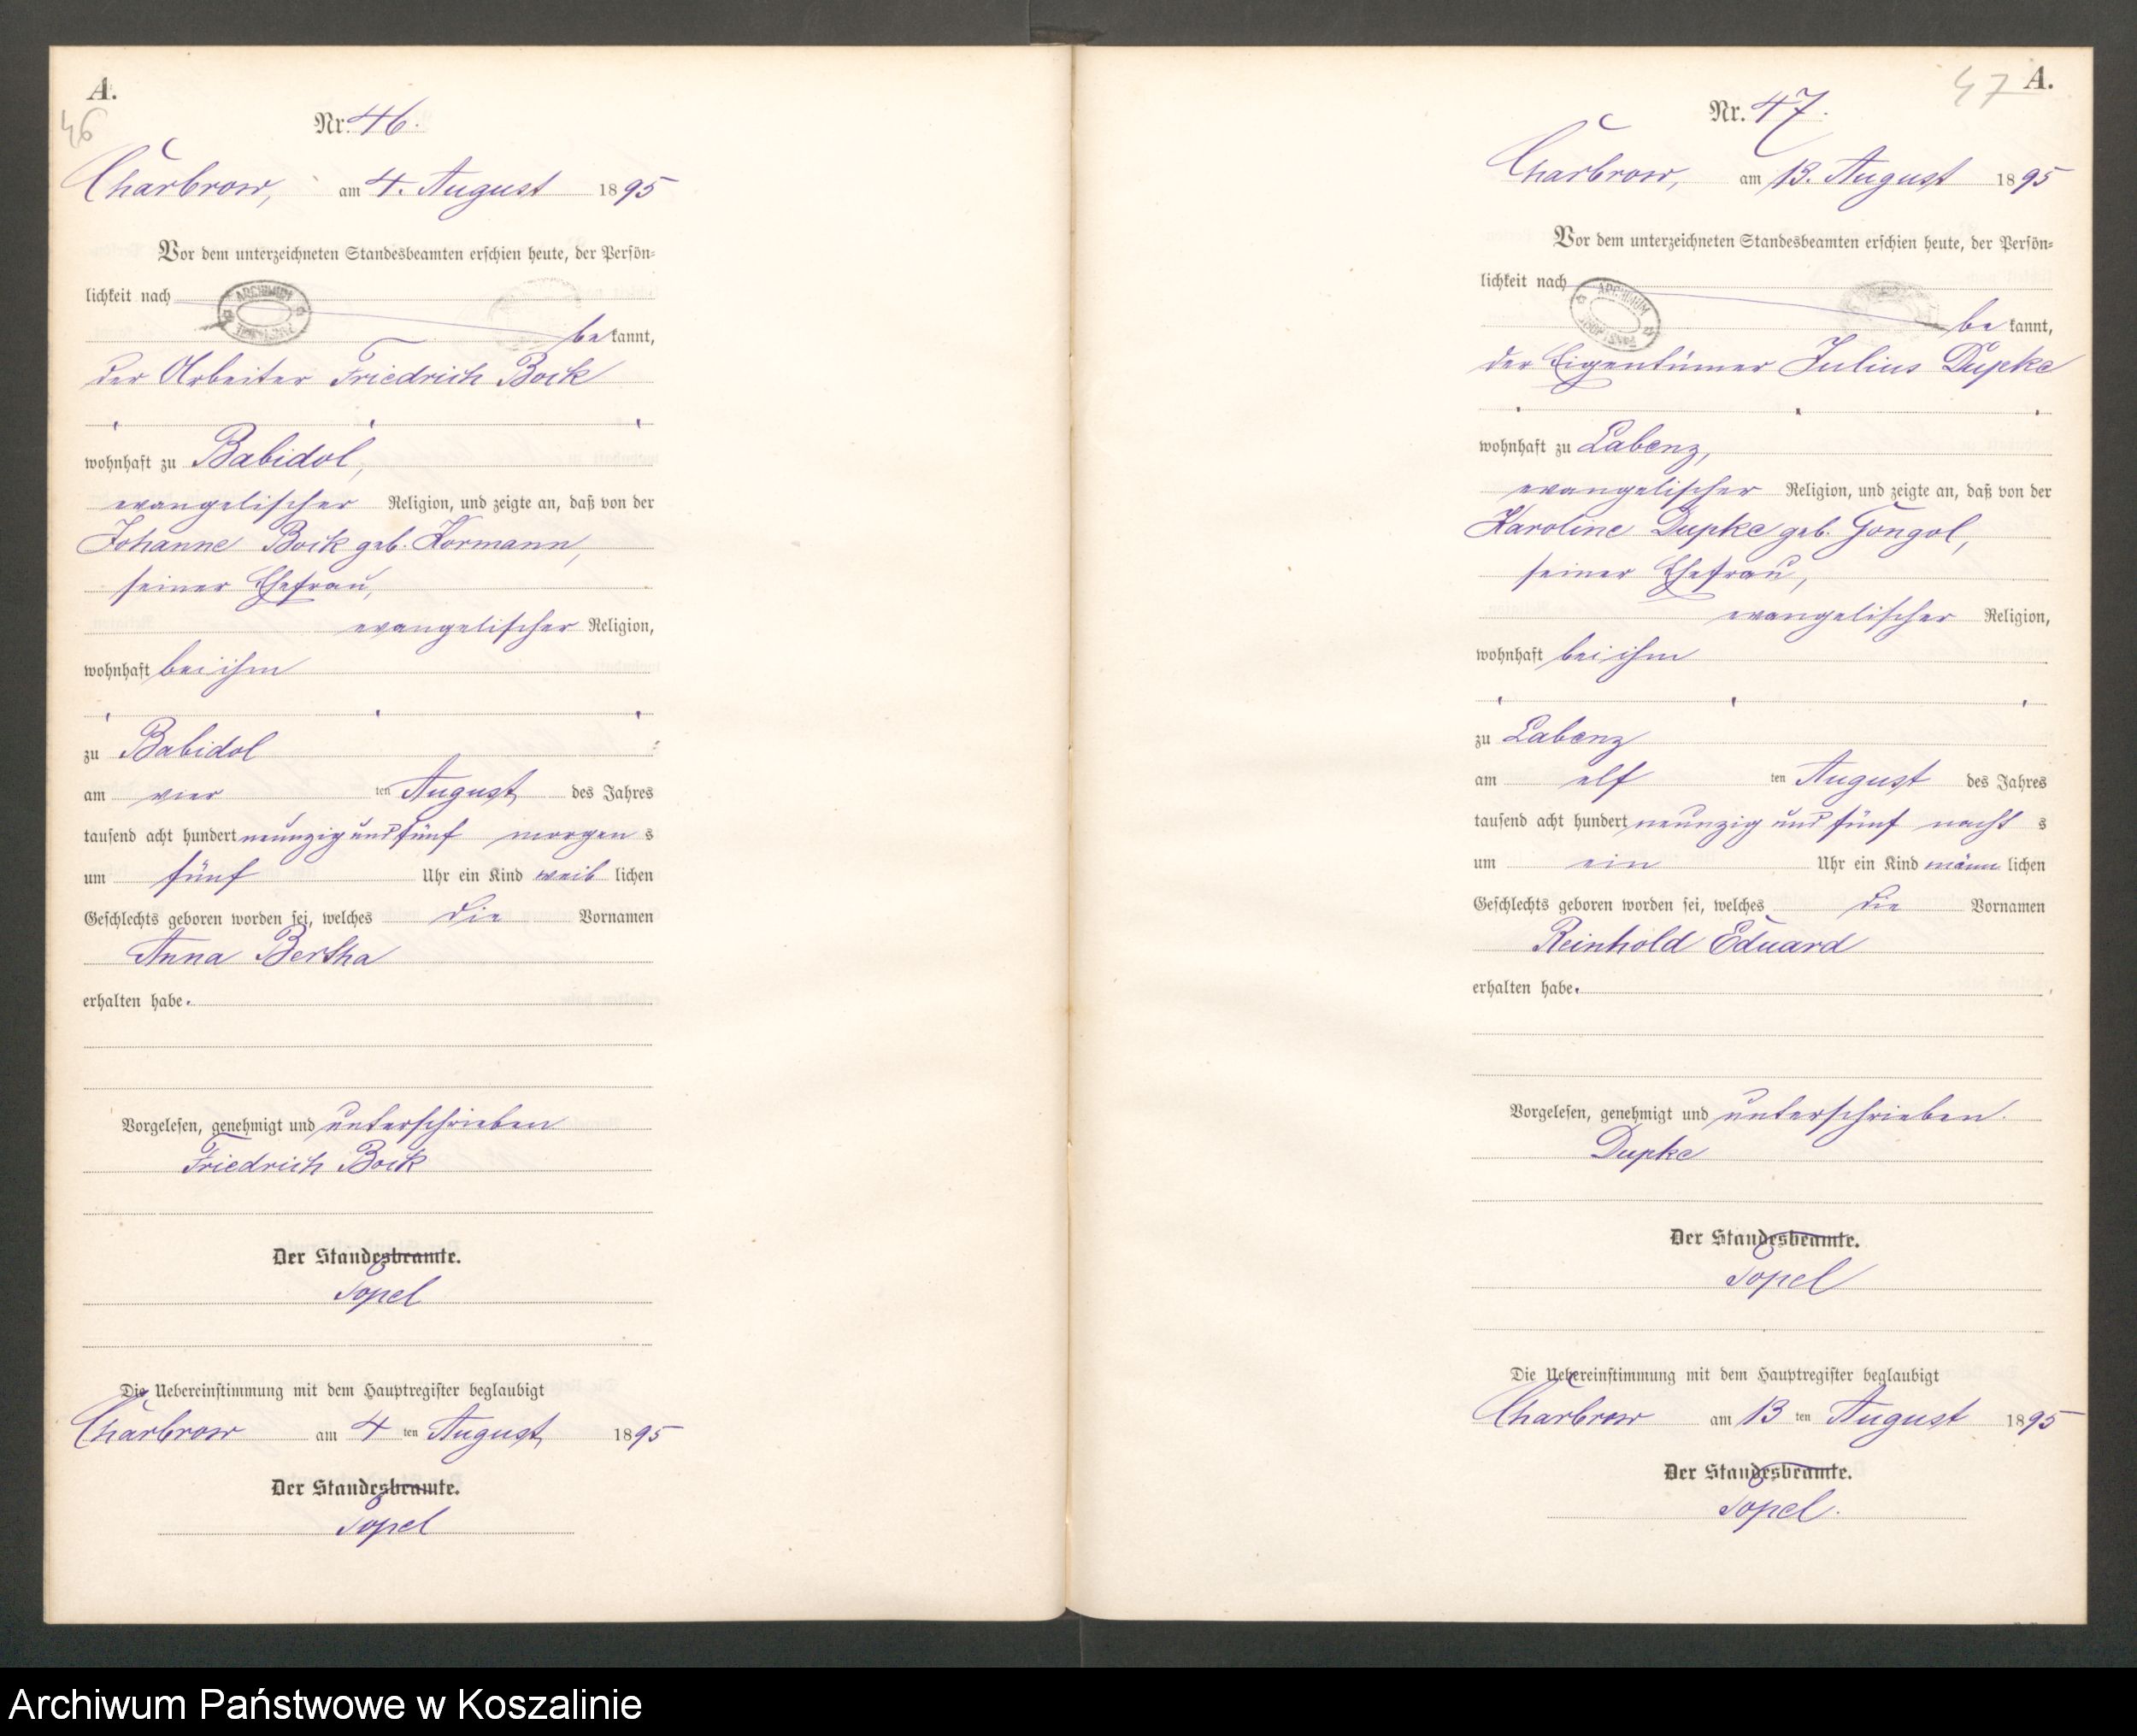 A.
46
Nr. 46.
Charbrow, am 4. August 1895
Vor dem unterzeichneten Standesbeamten erschien heute, der Persön-
lichkeit nach
ARCHIWUM
be kannt,
der Arbeiter Friedrich Bock
wohnhaft zu Babidol,
evangelischer Religion, und zeigte an, daß von der
Johanne Bock geb. Kormann,
seiner Ehefrau,
evangelischer Religion,
wohnhaft bei ihm
zu Babidol
am vier ten August des Jahres
tausend acht hundert neunzig und fünf morgen s
um fünf Uhr ein Kind weib lichen
Geschlechts geboren worden sei, welches die Vornamen
Anna Bertha
erhalten habe.
Vorgelesen, genehmigt und unterschrieben
Friedrich Bock
Der Standesbeamte.
Topel
Die Uebereinstimmung mit dem Hauptregister beglaubigt
Charbrow am 4 ten August 1895
Der Standesbeamte.
Topel
47 A.
Nr. 47.
Charbrow, am 13. August 1895
Vor dem unterzeichneten Standesbeamten erschien heute, der Persön-
lichkeit nach
ARCHIWUM
be kannt,
der Eigentümer Julius Dupke
wohnhaft zu Labenz,
evangelischer Religion, und zeigte an, daß von der
Karoline Dupke geb. Gongol,
seiner Ehefrau,
evangelischer Religion,
wohnhaft bei ihm
zu Labenz
am elf ten August des Jahres
tausend acht hundert neunzig und fünf nacht s
um ein Uhr ein Kind männ lichen
Geschlechts geboren worden sei, welches die Vornamen
Reinhold Eduard
erhalten habe.
Vorgelesen, genehmigt und unterschrieben.
Dupke
Der Standesbeamte.
Topel
Die Uebereinstimmung mit dem Hauptregister beglaubigt
Charbrow am 13 ten August 1895
Der Standesbeamte.
Topel.
Archiwum Państwowe w Koszalinie